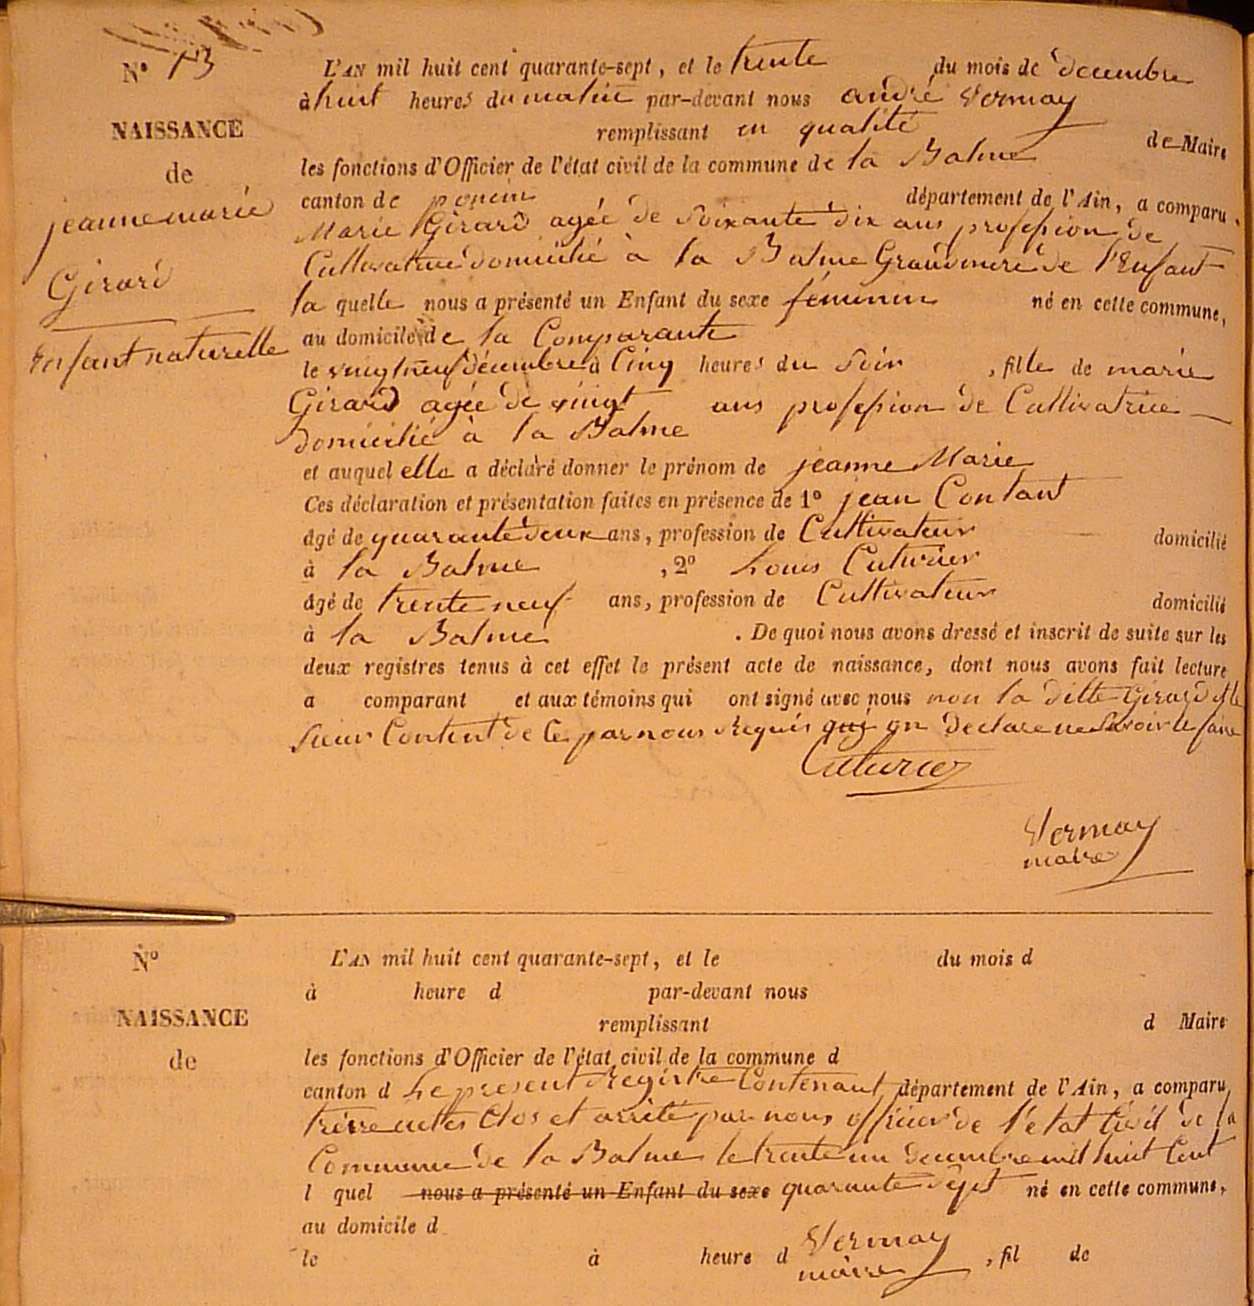 N° 13
NAISSANCE
de
jeanne marie
Girard
Enfant naturelle
L'AN mil huit cent quarante-sept, et le trente du mois de decembre
à huit heures du matin par-devant nous andré Vermay
remplissant en qualité de Maire
les fonctions d'Officier de l'état civil de la commune de la Balme
canton de poncin département de l'Ain, a comparu
Marie Girard agée de Soixante dix ans profession de
Cultivatrice domicilié à la Balme Grandmere de l'Enfant
la quelle nous a présenté un Enfant du sexe féminin né en cette commune,
au domicile de la Comparante
le vingt neuf décembre à Cinq heures du Soir, fille de marie
Girard agée de vingt ans profession de Cultivatrice
domicilié à la Balme
et auquel elle a déclaré donner le prénom de jeanne Marie
Ces déclaration et présentation faites en présence de 1° jean Contant
âgé de quarante deux ans, profession de Cultivateur domicilié
à la Balme, 2° Louis Cuturier
âgé de trente neuf ans, profession de Cultivateur domicilié
à la Balme. De quoi nous avons dressé et inscrit de suite sur les
deux registres tenus à cet effet le présent acte de naissance, dont nous avons fait lecture
a comparant et aux témoins qui ont signé avec nous non la ditte Girard et le
Sieur Content de Ce par nous Requis qui on declare ne Savoir le faire
Cuturier
Vermay
maire
N°
NAISSANCE
de
L'AN mil huit cent quarante-sept, et le du mois d
à heure d par-devant nous
remplissant d Maire
les fonctions d'Officier de l'état civil de la commune d
canton d Le present Registre Contenant département de l'Ain, a comparu
treize actes Clos et arrité par nous officier de l'état Civil de la
Commune de la Balme le trente un decembre mil huit Cent
l quel nous a présenté un Enfant du sexe quarante Sept né en cette commune,
au domicile d
le à heure d Vermay, fil de
maire